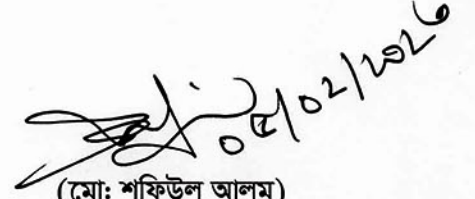 ০৫/০২/২০২৬
(মো: শফিউল আলম)